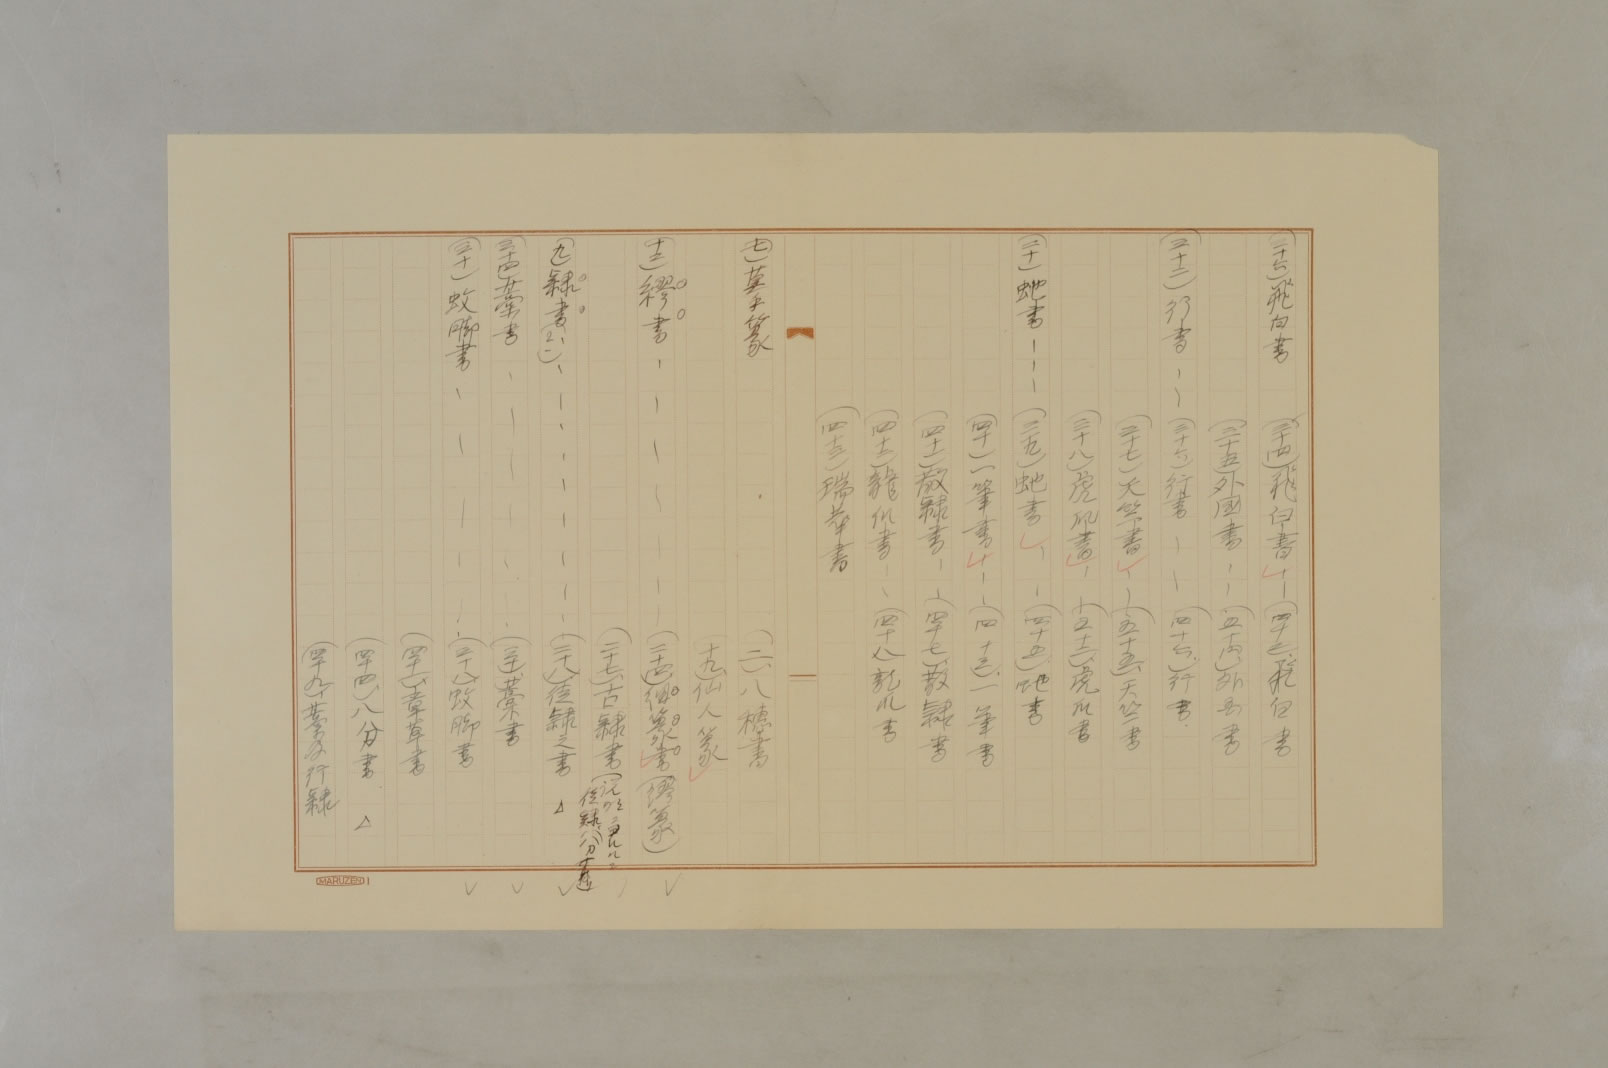 (二十六)飛白書 (三十四)飛白書 (四十三)飛白書
(三十五)外国書 外国書
(二十二)行書 (三十六)行書 (四十六)行書
(三十七)天竺書 (五十五)天竺書
(三十八)虎爪書 (五十三)虎爪書
(二十一)蛇書 (三十九)蛇書 (四十五)蛇書
(四十)一筆書 一筆書
(四十一)散隷書 (四十七)散隷書
(四十二)龍爪書 (四十八)龍爪書
(四十三)瑞華書
(七) (二)八穂書
(十九)仙人篆
(十三)繆書 (二十四) 篆書(繆篆)
(二十七)古隷書
(九)隷書 (二十八)佐隷之書
(二十四)藁書 藁書
(三十一)蚊脚書 (三十八)蚊脚書
章草書
(四十四)八分書
(四十九)藁及行隷
MARUZEN